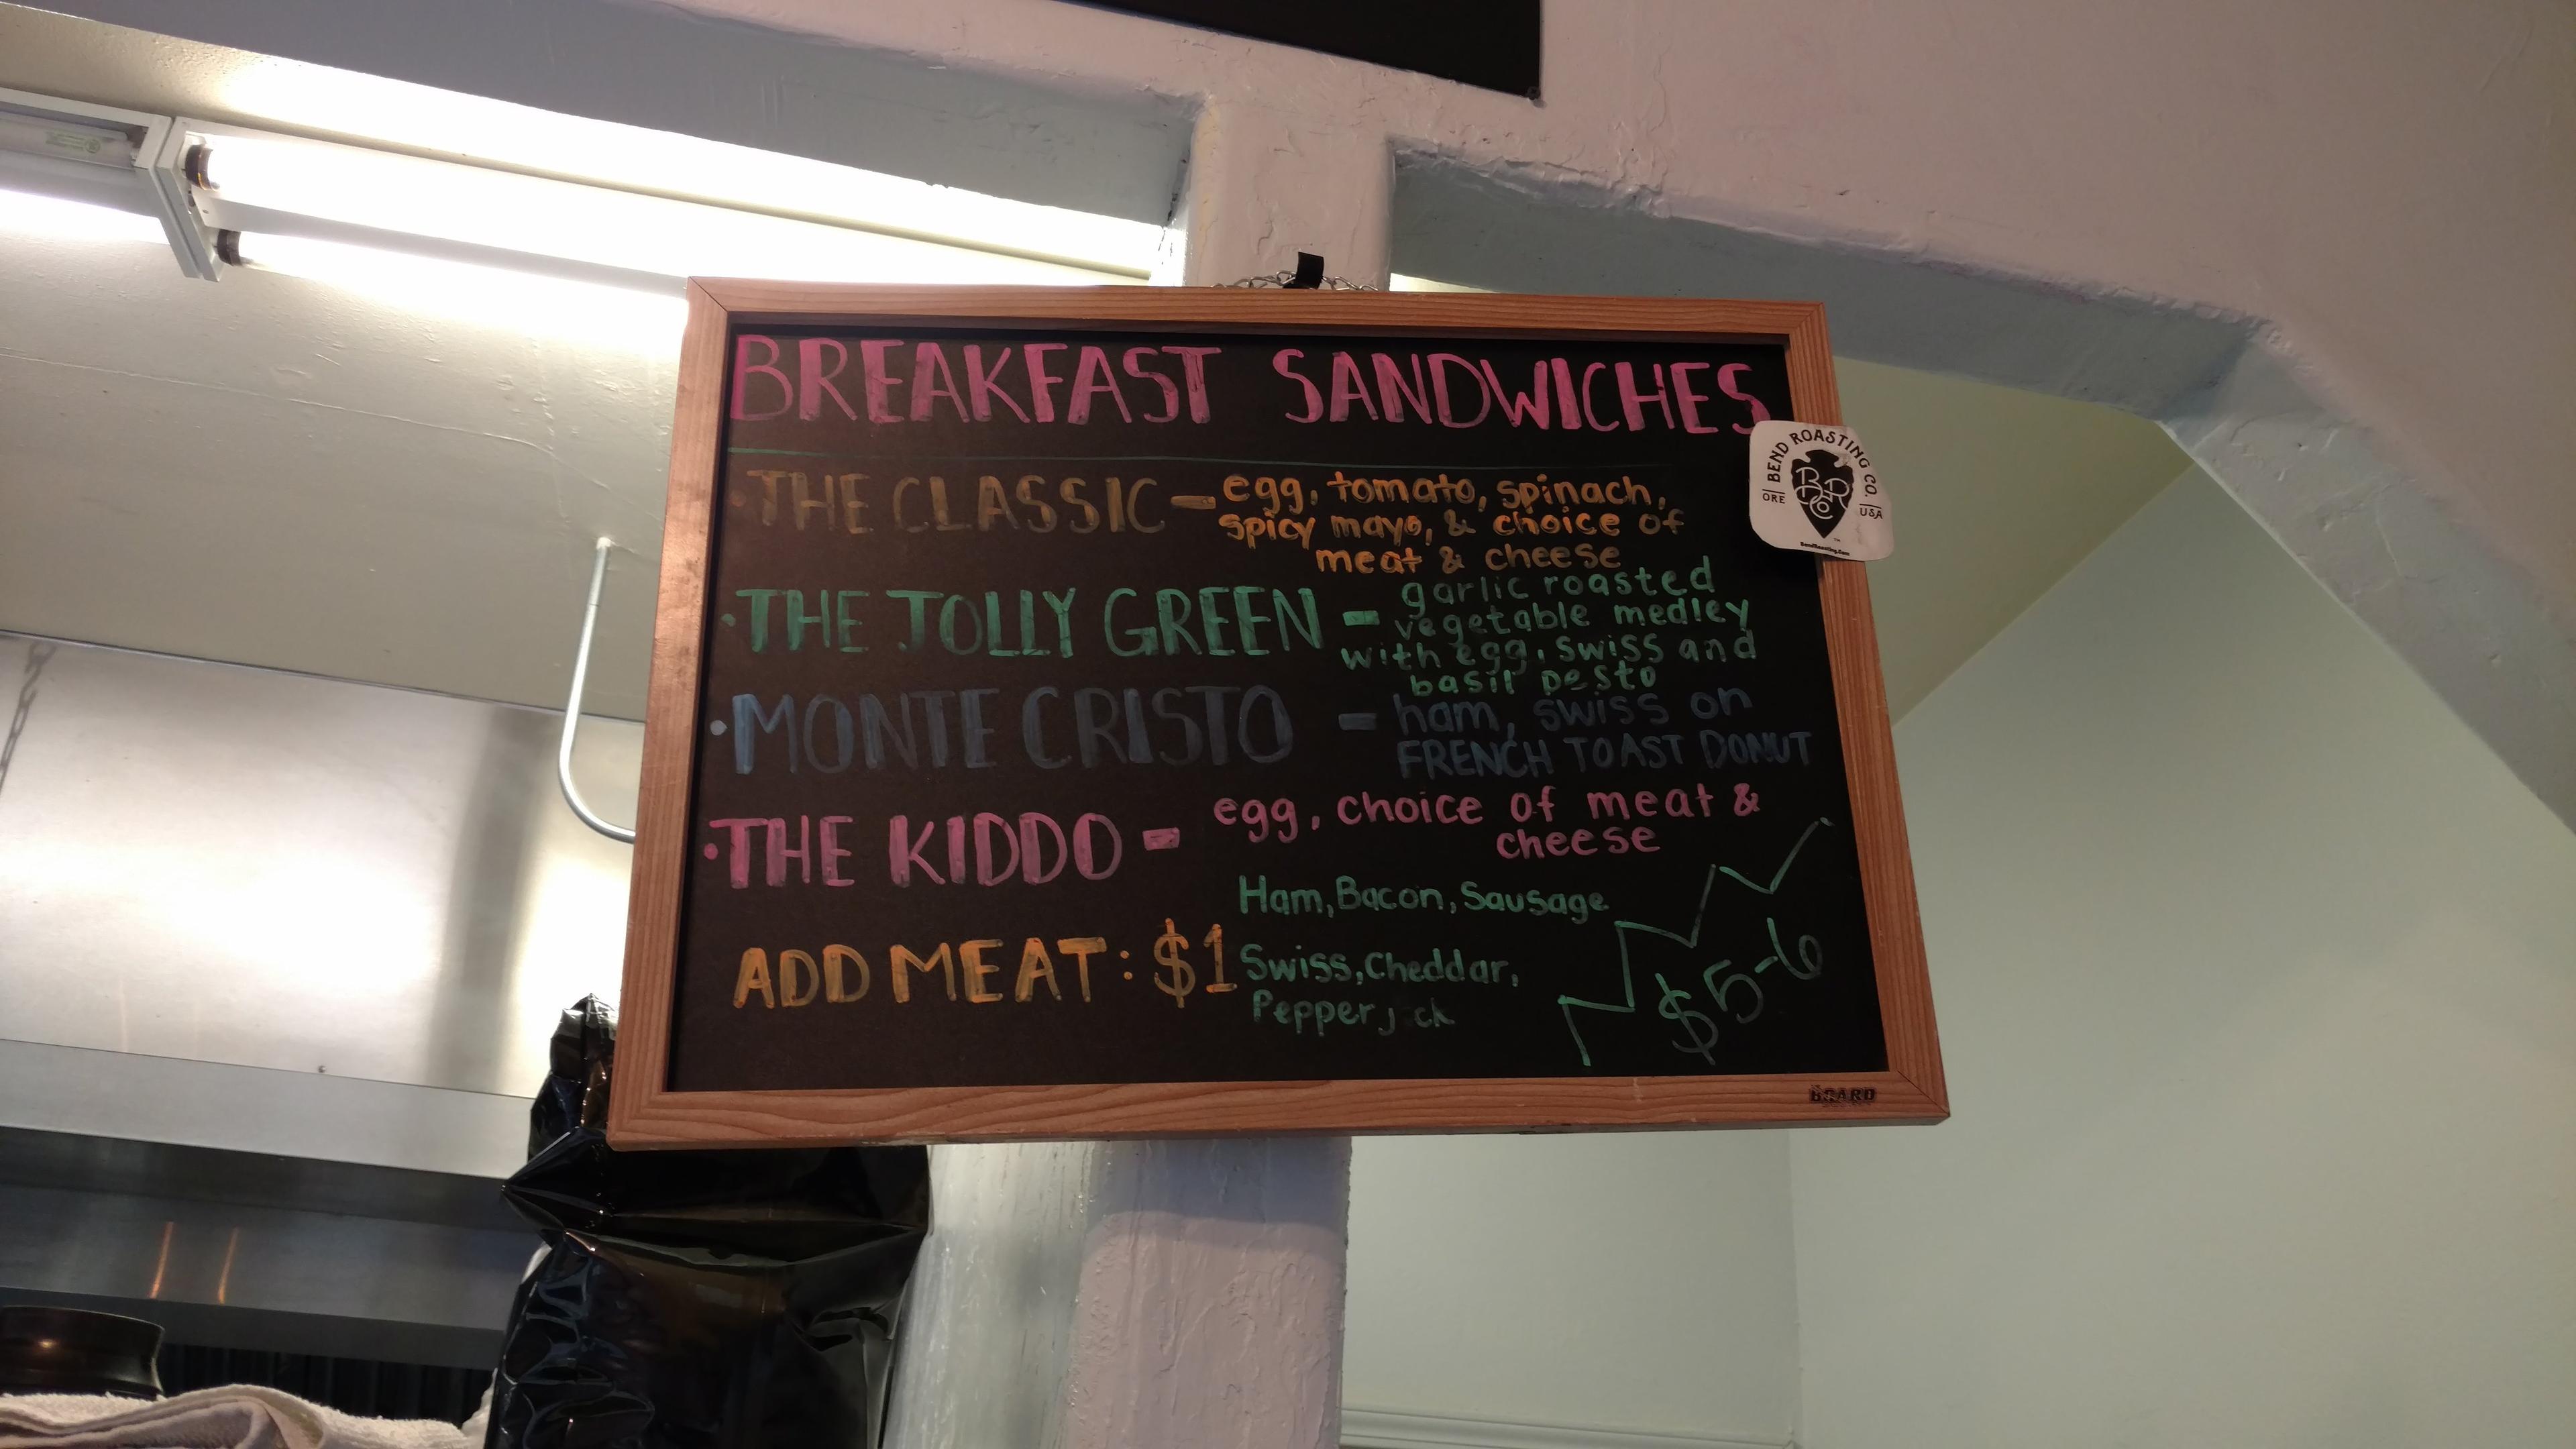 BREAKFAST SANDWICHES
BEND ROASTING CO.
ORE
BRCO
USA
BendRoasting.Com
· THE CLASSIC - egg, tomato, spinach,
spicy mayo, & choice of
meat & cheese
· THE JOLLY GREEN - garlic roasted
vegetable medley
with egg, swiss and
basil pesto
· MONTE CRISTO - ham, swiss on
FRENCH TOAST DONUT
· THE KIDDO - egg, choice of meat &
cheese
Ham, Bacon, Sausage
ADD MEAT: $1
Swiss, Cheddar,
Pepper j ck
$5-6
BOARD